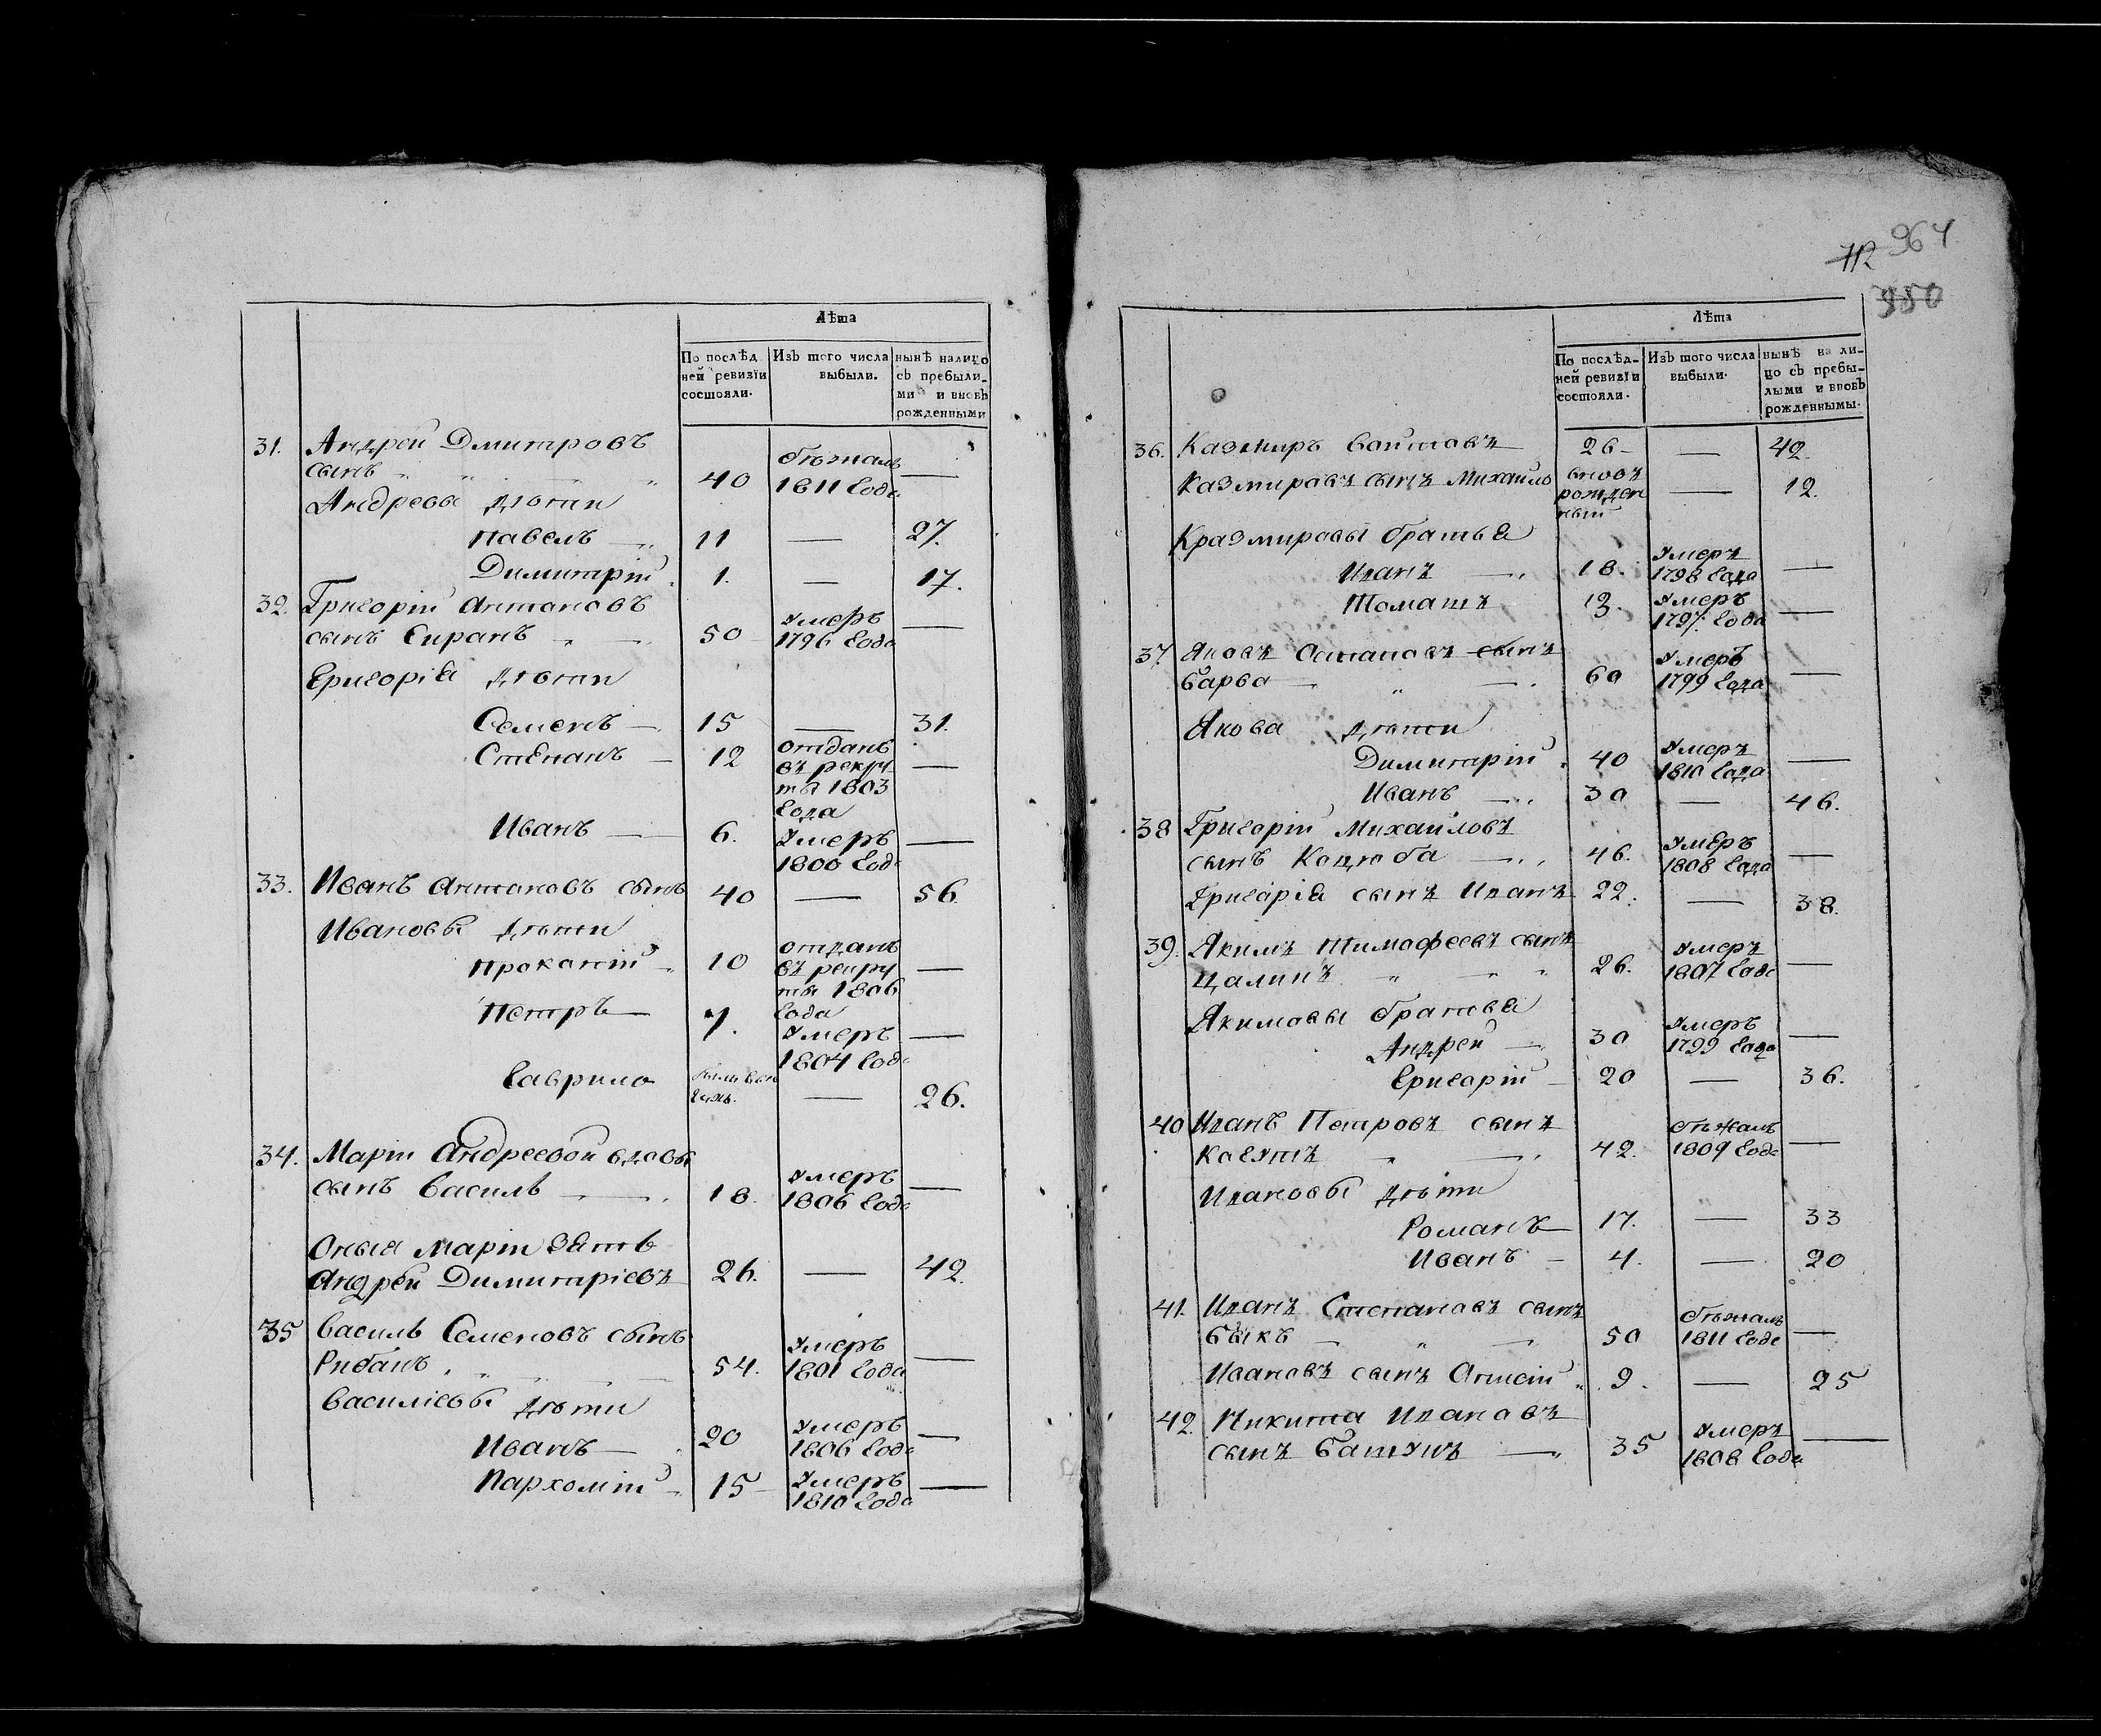 Лѣта
По послѣд
ней ревизїи
состояли.
Изъ того числа
выбыли.
нынѣ налицо
съ прeбыли-
ми и вновь
рожденными
31. Андрей Дмитровъ
сынъ 40 бѣжалъ 1811 Года —
Андреевы дѣти
Павелъ — 11 — 27.
Димитрій 1. — 17.
32. Григорій Антоновъ
сынъ Гиранъ 50 Умеръ 1796 Года —
Григорія дѣти
Семенъ — 15 — 31.
Степанъ — 12 отданъ въ рекруты 1803 Года —
Иванъ — 6. Умеръ 1800 Года —
33. Иванъ Антоновъ сынъ 40 — 56
Ивановы дѣти
Прокопій 10 отданъ въ рекруты 1806 Года —
Петръ — 7. Умеръ 1804 Года —
Гаврило — 26.
34. Маріи Андреевой вдовы
сынъ Василь 18. Умеръ 1806 Года —
Оныя Маріи зять
Андрей Димитріевъ 26. — 42.
35 Василь Семеновъ сынъ
Рибанъ 54. Умеръ 1801 Года —
Василіевы дѣти
Иванъ — 20 Умеръ 1806 Года —
Пархомій 15 — Умеръ 1810 Года —
712 964
950
Лѣта
По послѣд-
ней ревизїи
состояли.
Изъ того числа
выбыли.
нынѣ на ли-
цо съ пребы-
лыми и вновь
рожденнымы.
36. Казмиръ Войтовъ 26 — 42.
Казмировъ сынъ Михайло вновь рожденный — 12.
Кразмировы братья
Иванъ — 18. Умеръ 1798 Года —
Томашъ 13. Умеръ 1797. Года —
37. Яковъ Остаповъ сынъ
Варва — 60 Умеръ 1799 Года —
Якова дѣти
Димитрій 40 Умеръ 1810 Года —
Иванъ — 30 — 46.
38 Григорій Михайловъ
сынъ Коцюба 46. Умеръ 1808 Года —
Григорія сынъ Иванъ 22. — 38.
39. Якимъ Тимофеевъ сынъ
Цалинъ 26. Умеръ 1807 Года —
Якимовы братья
Андрей — 30 Умеръ 1799 Года —
Григорій — 20 — 36.
40 Иванъ Петровъ сынъ
Ковтунъ 42. бѣжалъ 1809 Года —
Ивановы дѣти
Романъ — 17. — 33
Иванъ — 4. — 20
41. Иванъ Степановъ сынъ
Быкъ — 50 бѣжалъ 1811 Года —
Ивановъ сынъ 9. — 25
42. Никита Ивановъ
сынъ Башунъ — 35 Умеръ 1808 Года —